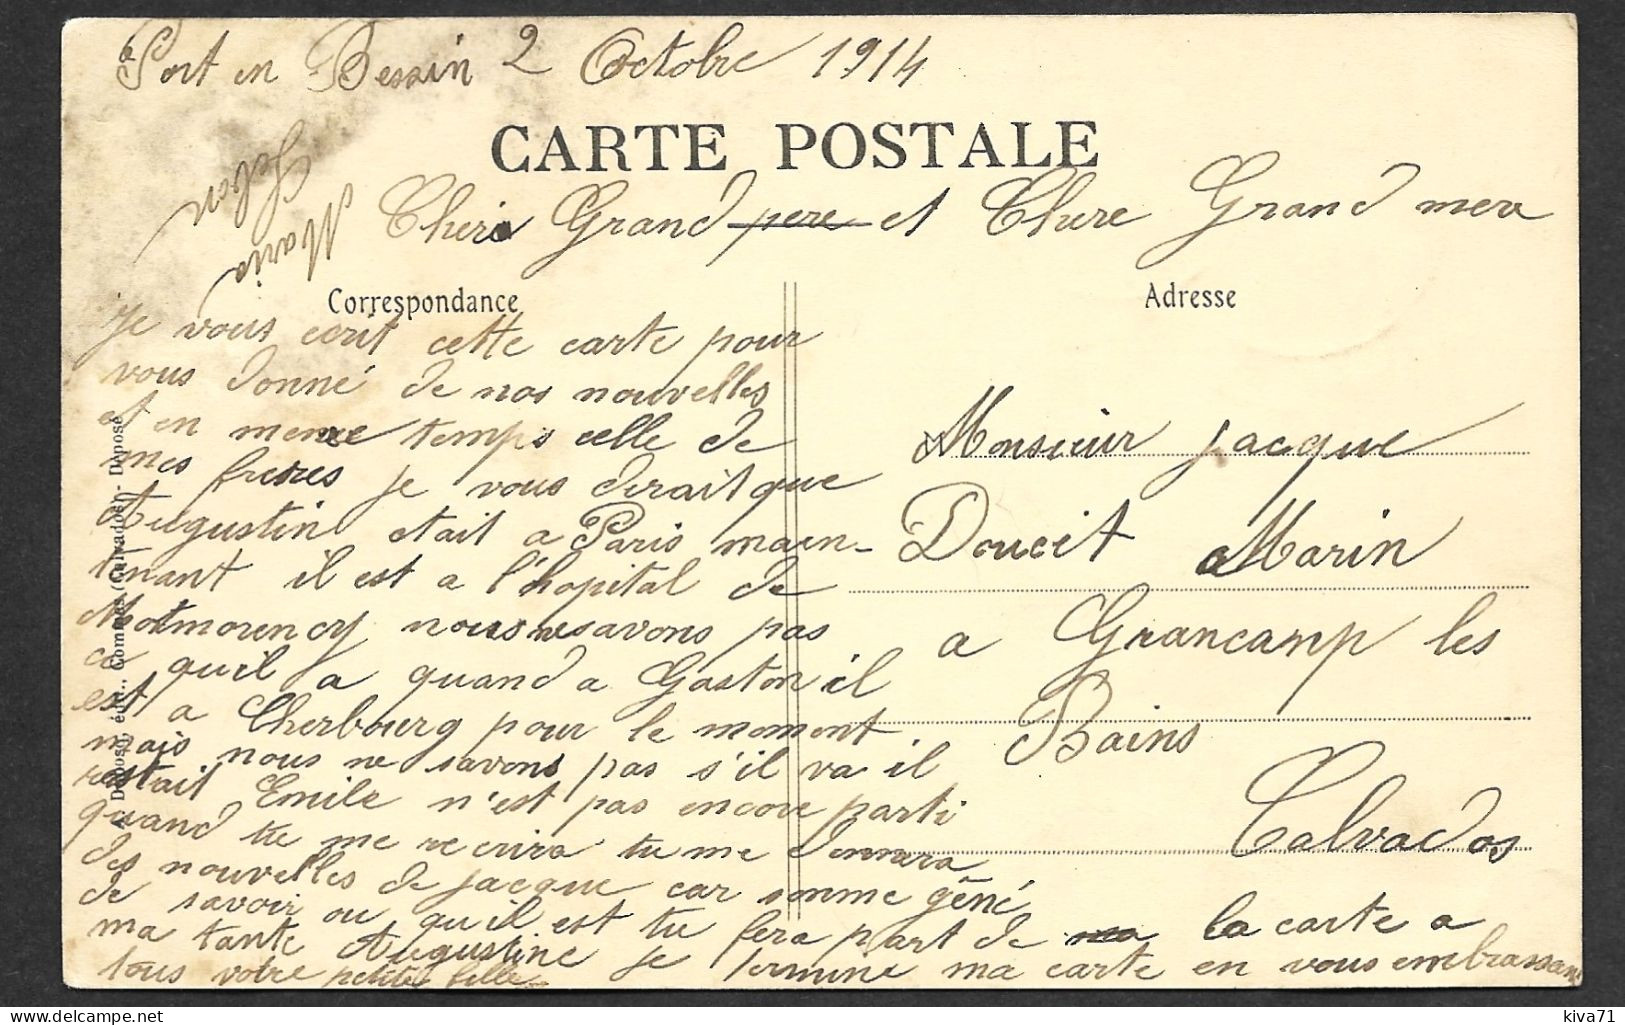 Port en Bessin 2 Octobre 1914
CARTE POSTALE
Maria
Cheri Grand pere et Chere Grand mere
Correspondance
Adresse
Je vous ecrit cette carte pour
vous donné de nos nouvelles
et en meme temps celle de
mes freres je vous dirait que
Augustin etait a Paris main-
tenant il est a l'hopital de
Motmorency nous ne savons pas
ce qu'il a quand a Gaston il
est a Cherbourg pour le moment
mais nous ne savons pas s'il va il
restait Emile n'est pas encore parti
quand tu me recrira tu me donnera
des nouvelles de jacque car somme géné
de savoir ou qu'il est tu fera part de la carte a
ma tante Augustine je termine ma carte en vous embrassant
tous votre petite fille
Monsieur jacque
Doucit Marin
a Grancamp les
Bains
Calvados
édit., Commes (Calvados) - Déposé
kiva71